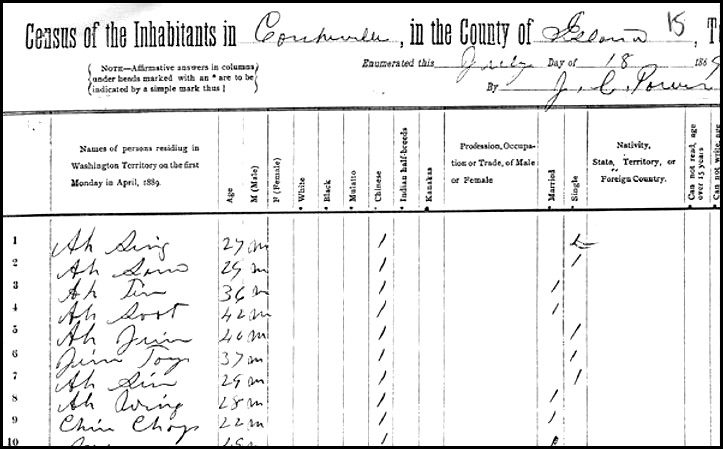 Census of the Inhabitants in Coupeville, in the County of Island 15, T
Enumerated this July Day of 18 1889
By J. C. Power
NOTE—Affirmative answers in columns
under heads marked with an * are to be
indicated by a simple mark thus /
Names of persons residing in
Washington Territory on the first
Monday in April, 1889.
Age
M (Male)
F (Female)
* White
* Black
* Mulatto
* Chinese
* Indian half-breeds
* Kanakas
Profession, Occupa-
tion or Trade, of Male
or Female
* Married
* Single
Nativity,
State, Territory, or
Foreign Country.
* Can not read, age
over 15 years
* Can not write, age
1 Ah Sing 27 m / /
2 Ah Sam 29 m / /
3 Ah Tin 36 m / /
4 Ah Soot 42 m / /
5 Ah Jim 40 m / /
6 Jim Toy 37 m / /
7 Ah Sin 29 m / /
8 Ah Wing 28 m / /
9 Chin Choy 22 m / /
10